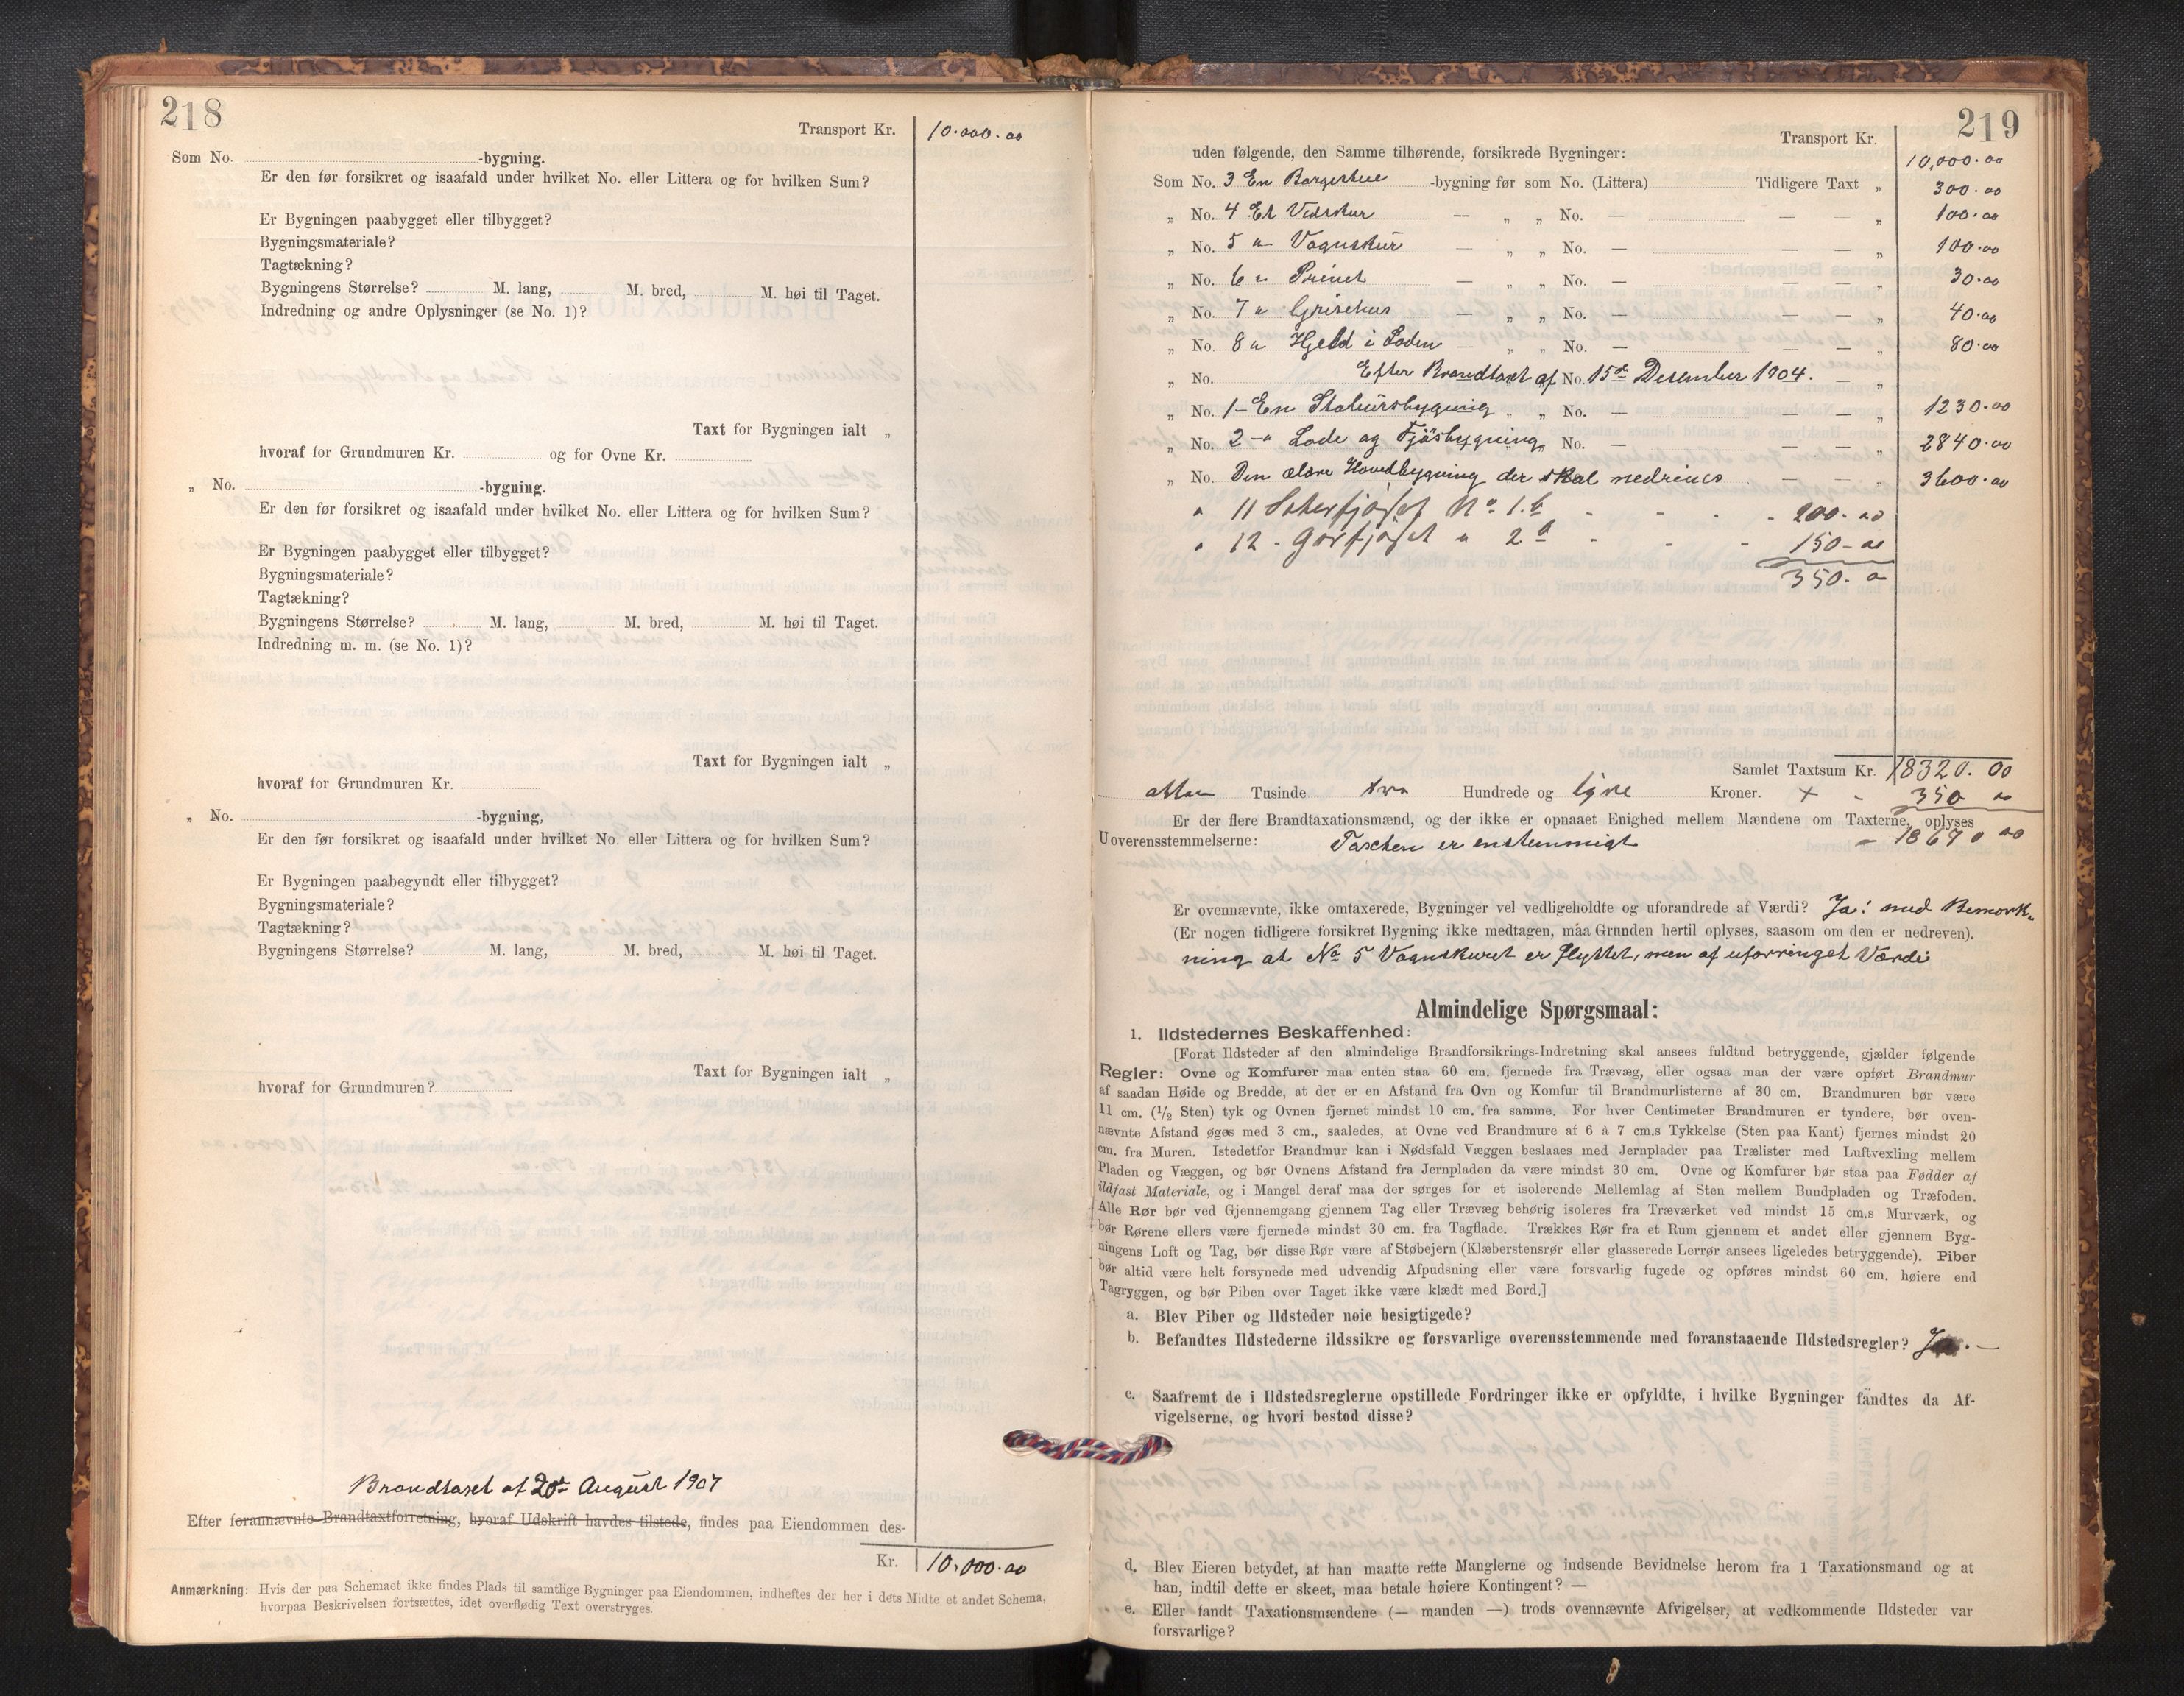 218
Transport Kr. 10.000.00
Som No. -bygning.
Er den før forsikret og isaafald under hvilket No. eller Littera og for hvilken Sum?
Er Bygningen paabygget eller tilbygget?
Bygningsmateriale?
Tagtækning?
Bygningens Størrelse? M. lang, M. bred, M. høi til Taget.
Indredning og andre Oplysninger (se No. 1)?
Taxt for Bygningen ialt „
hvoraf for Grundmuren Kr. og for Ovne Kr.
„ No. -bygning.
Er den før forsikret og isaafald under hvilket No. eller Littera og for hvilken Sum?
Er Bygningen paabygget eller tilbygget?
Bygningsmateriale?
Tagtækning?
Bygningens Størrelse? M. lang, M. bred, M. høi til Taget.
Indredning m. m. (se No. 1)?
Taxt for Bygningen ialt „
hvoraf for Grundmuren Kr.
„ No. -bygning,
Er den før forsikret og isaafald under hvilket No. eller Littera og for hvilken Sum?
Er Bygningen paabegyudt eller tilbygget?
Bygningsmateriale?
Tagtækning?
Bygningens Størrelse? M. lang, M. bred, M. høi til Taget.
Taxt for Bygningen ialt „
hvoraf for Grundmuren?
Brandtaxt af 20de August 1907
Efter forannævnte Brandtaxtforretning, hvoraf Udskrift havdes tilstede, findes paa Eiendommen des-
Kr. 10,000.00
Anmærkning: Hvis der paa Schemaet ikke findes Plads til samtlige Bygninger paa Eiendommen, indheftes der her i dets Midte et andet Schema,
hvorpaa Beskrivelsen fortsættes, idet overflødig Text overstryges.
219
Transport Kr. 10,000.00
uden følgende, den Samme tilhørende, forsikrede Bygninger:
Som No. 3 En Borgestue -bygning før som No. (Littera) Tidligere Taxt „ 300.00
„ No. 4 Et Vedskur — „ „ No. — — — „ 100.00
„ No. 5 " Vognskur — „ „ No. — — — „ 100.00
„ No. 6 " Privet — „ „ No. — — — „ 30.00
„ No. 7 " Grisehus — „ „ No. — — — „ 40.00
„ No. 8 " Hjeld i Loden — „ „ No. — — — „ 80.00
„ No. Efter Brandtaxt af No. 15de Desember 1904. — „
„ No. 1 - En Stabursbygning „ „ No. — — — „ 1230.00
„ No. 2 - " Lode og Fjøsbygning „ No. — — — „ 2840.00
„ No. Den ældre Hovedbygning der skal nedrives — — „ 3600.00
" 11 No. 1.b - - - - 200.00
" 12 - " 2.d - - - 150-00
350.0
Samlet Taxtsum Kr. 18320.00
atten Tusinde tre Hundrede og tyve Kroner. + - 350 00
Er der flere Brandtaxationsmænd, og der ikke er opnaaet Enighed mellem Mændene om Taxterne, oplyses
Uoverensstemmelserne: Taxten er enstemmigt - 18670 00
Er ovennævnte, ikke omtaxerede, Bygninger vel vedligeholdte og uforandrede af Værdi? Ja! med Bemærk-
(Er nogen tidligere forsikret Bygning ikke medtagen, maa Grunden hertil oplyses, saasom om den er nedreven).
ning at No 5 Vognskuret er flyttet, men af uforringet Værdi
Almindelige Spørgsmaal:
1. Ildstedernes Beskaffenhed:
[Forat Ildsteder af den almindelige Brandforsikrings-Indretning skal ansees fuldtud betryggende, gjælder følgende
Regler: Ovne og Komfurer maa enten staa 60 cm. fjernede fra Trævæg, eller ogsaa maa der være opført Brandmur
af saadan Høide og Bredde, at der er en Afstand fra Ovn og Komfur til Brandmurlisterne af 30 cm. Brandmuren bør være
11 cm. (1/2 Sten) tyk og Ovnen fjernet mindst 10 cm. fra samme. For hver Centimeter Brandmuren er tyndere, bør oven-
nævnte Afstand øges med 3 cm., saaledes, at Ovne ved Brandmure af 6 à 7 cm.s Tykkelse (Sten paa Kant) fjernes mindst 20
cm. fra Muren. Istedetfor Brandmur kan i Nødsfald Væggen beslaaes med Jernplader paa Trælister med Luftvexling mellem
Pladen og Væggen, og bør Ovnens Afstand fra Jernpladen da være mindst 30 cm. Ovne og Komfurer bør staa paa Fødder af
ildfast Materiale, og i Mangel deraf maa der sørges for et isolerende Mellemlag af Sten mellem Bundpladen og Træfoden.
Alle Rør bør ved Gjennemgang gjennem Tag eller Trævæg behørig isoleres fra Træværket ved mindst 15 cm.s Murværk, og
bør Rørene ellers være fjernede mindst 30 cm. fra Tagflade. Trækkes Rør fra et Rum gjennem et andet eller gjennem Byg-
ningens Loft og Tag, bør disse Rør være af Støbejern (Klæberstensrør eller glasserede Lerrør ansees ligeledes betryggende). Piber
bør altid være helt forsynede med udvendig Afpudsning eller være forsvarlig fugede og opføres mindst 60 cm. høiere end
Tagryggen, og bør Piben over Taget ikke være klædt med Bord.]
a. Blev Piber og Ildsteder nøie besigtigede?
b. Befandtes Ildstederne ildssikre og forsvarlige overensstemmende med foranstaaende Ildstedsregler? Ja. —
c. Saafremt de i Ildstedsreglerne opstillede Fordringer ikke er opfyldte, i hvilke Bygninger fandtes da Af-
vigelserne, og hvori bestod disse?
d. Blev Eieren betydet, at han maatte rette Manglerne og indsende Bevidnelse herom fra 1 Taxationsmand og at
han, indtil dette er skeet, maa betale høiere Kontingent? —
e. Eller fandt Taxationsmændene (— manden —) trods ovennævnte Afvigelser, at vedkommende Ildsteder var
forsvarlige?